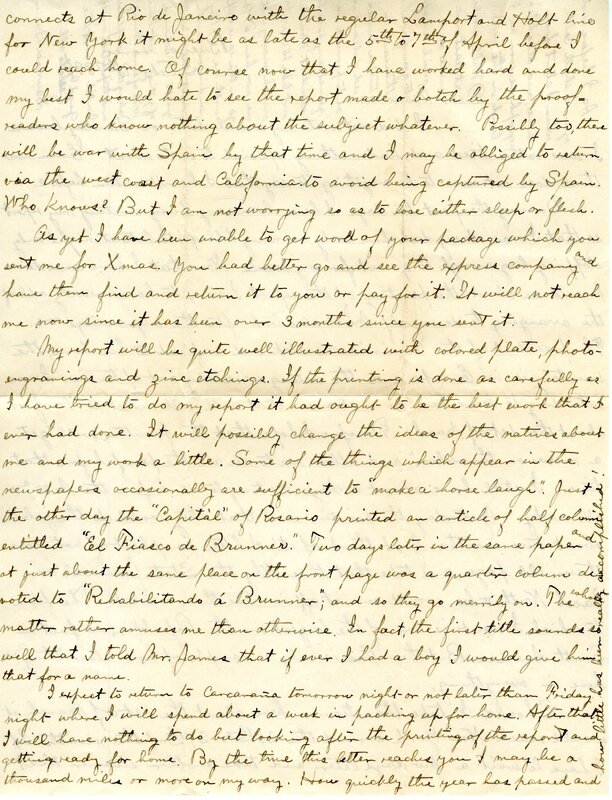 connects at Rio de Janeiro with the regular Lamport and Holt line
for New York it might be as late as the 5th to 7th of April before I
could reach home. Of course now that I have worked hard and done
my best I would hate to see the report made a botch by the proof-
readers who know nothing about the subject whatever. Possibly too, there
will be war with Spain by that time and I may be obliged to return
via the west coast and California to avoid being captured by Spain.
Who knows? But I am not worrying so as to lose either sleep or flesh.
As yet I have been unable to get word of your package which you
sent me for Xmas. You had better go and see the express company and
have them find and return it to you or pay for it. It will not reach
me now since it has been over 3 months since you sent it.
My report will be quite well illustrated with colored plate, photo-
engravings and zinc etchings. If the printing is done as carefully as
I have tried to do my report it had ought to be the best work that I
ever had done. It will possibly change the ideas of the natives about
me and my work a little. Some of the things which appear in the
newspapers occasionally are sufficient to "make a horse laugh". Just
the other day the "Capital" of Rosario printed an article of half column
entitled "El Fiasco de Brunner." Two days later in the same paper and
at just about the same place on the front page was a quarter colum de-
voted to "Rehabilitando á Brunner"; and so they go merrily on. The whole
matter rather amuses me than otherwise. In fact, the first title sounds so
well that I told Mr. James that if ever I had a boy I would give him
that for a name.
I expect to return to Carcaraña tomorrow night or not later than Friday
night where I will spend about a week in packing up for home. After that
I will have nothing to do but looking after the printing of the report and
getting ready for home. By the time this letter reaches you I may be a
thousand miles or more on my way. How quickly the year has passed and
how little has been really accomplished!